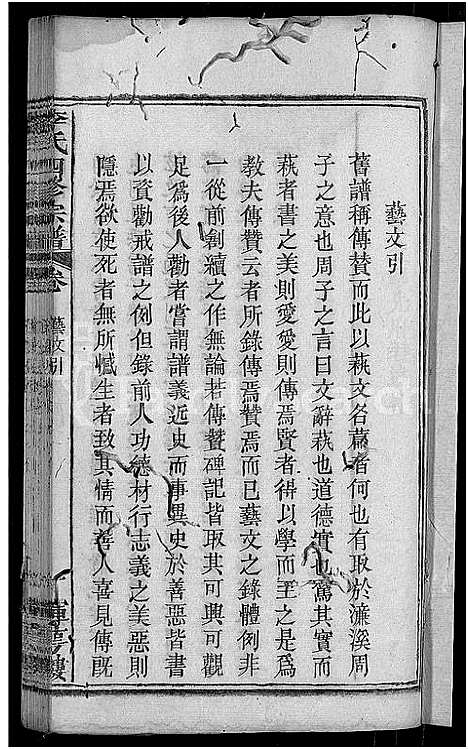 藝文引
舊譜稱傳贊而此以萟文名蓋者何也有取於濂溪周
子之意也周子之言曰文辭萟也道德實也篤其實而
萟者書之美則愛愛則傳焉賢者得以學而至之是爲
教夫傳贊云者所錄傳焉贊焉而已藝文之錄體例非
一從前創續之作無論若傳贊碑記皆取其可興可觀
足爲後人勸者嘗謂譜義近史而事異史於善惡皆書
以資勸戒譜之例但錄前人功德材行志義之美惡則
隱焉欲使死者無所憾生者致其情而善人喜見傳既
李氏四修宗譜
卷
藝文引